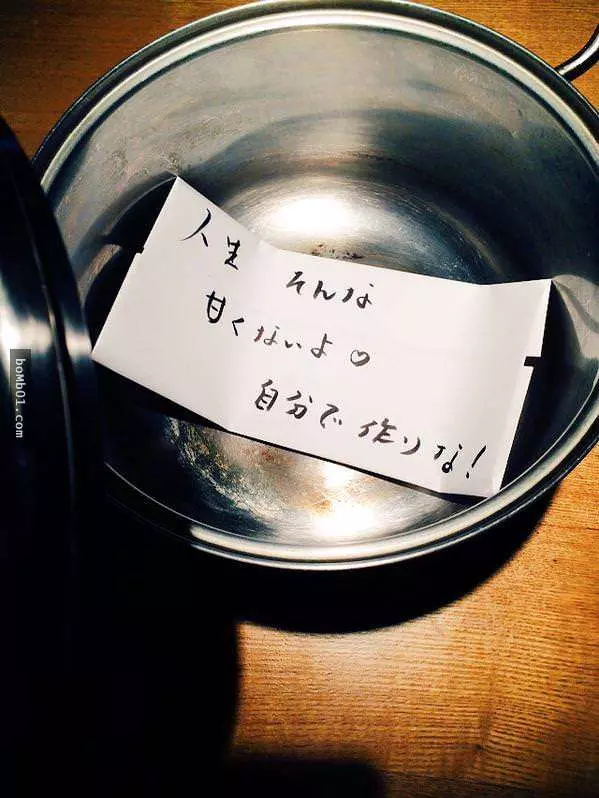 人生 そんな
甘くないよ♡
自分で作りな!
bomb01.com